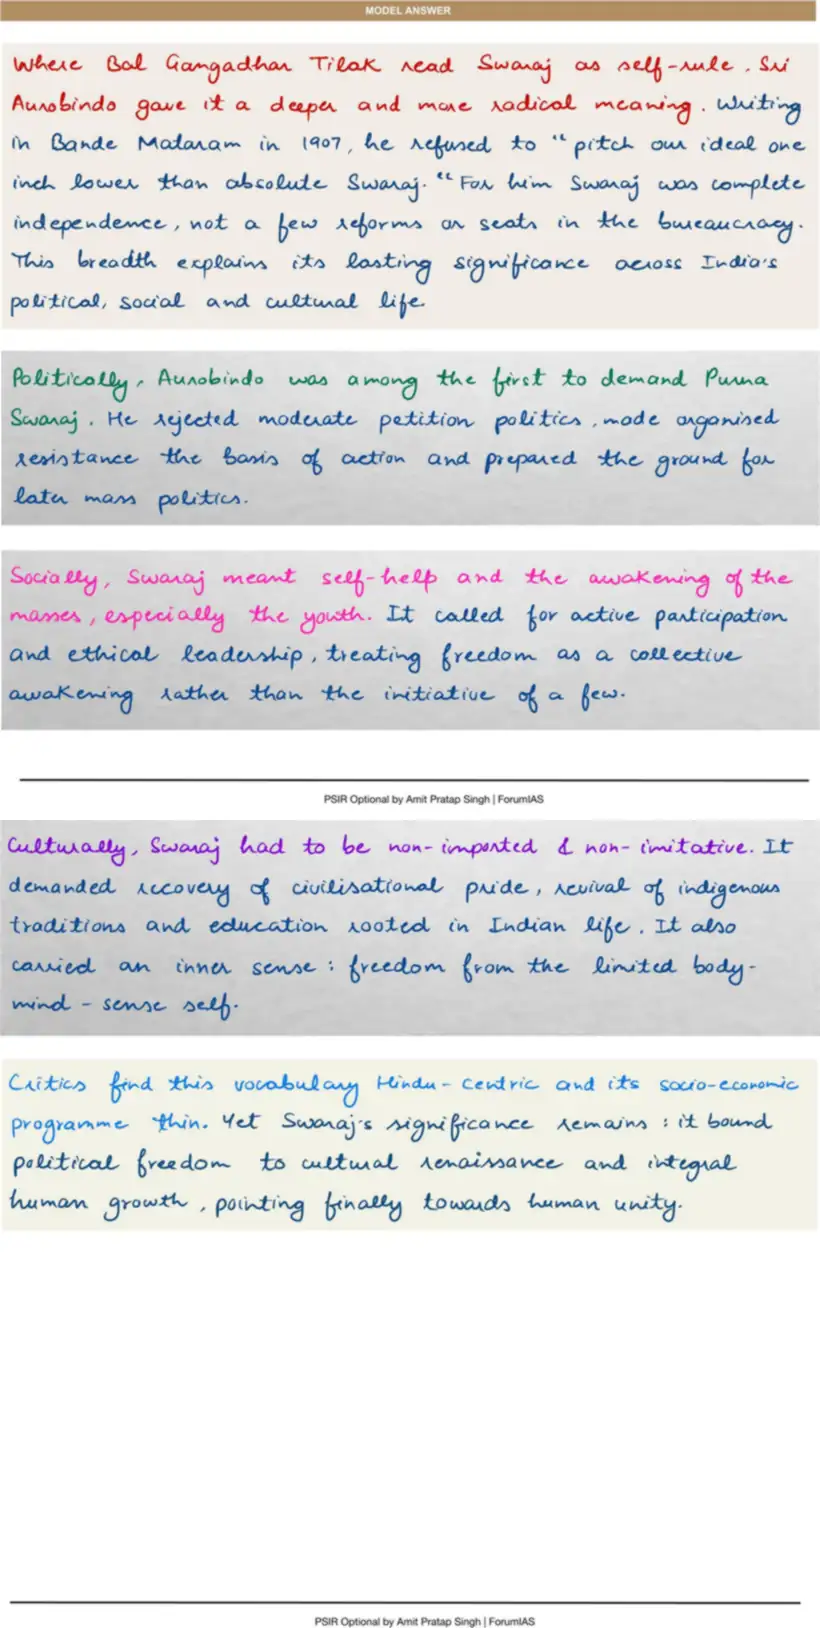 MODEL ANSWER
Where Bal Gangadhar Tilak read Swaraj as self-rule. Sri
Aurobindo gave it a deeper and more radical meaning. Writing
in Bande Mataram in 1907, he refused to "pitch our ideal one
inch lower than absolute Swaraj." For him Swaraj was complete
independence, not a few reforms or seats in the bureaucracy.
This breadth explains its lasting significance across India's
political, social and cultural life.
Politically, Aurobindo was among the first to demand Purna
Swaraj. He rejected moderate petition politics, made organised
resistance the basis of action and prepared the ground for
later mass politics.
Socially, Swaraj meant self-help and the awakening of the
masses, especially the youth. It called for active participation
and ethical leadership, treating freedom as a collective
awakening rather than the initiative of a few.
PSIR Optional by Amit Pratap Singh | ForumIAS
Culturally, Swaraj had to be non-imported & non-imitative. It
demanded recovery of civilisational pride, revival of indigenous
traditions and education rooted in Indian life. It also
carried an inner sense: freedom from the limited body-
mind-sense self.
Critics find this vocabulary Hindu-Centric and its socio-economic
programme thin. Yet Swaraj's significance remains: it bound
political freedom to cultural renaissance and integral
human growth, pointing finally towards human unity.
PSIR Optional by Amit Pratap Singh | ForumIAS